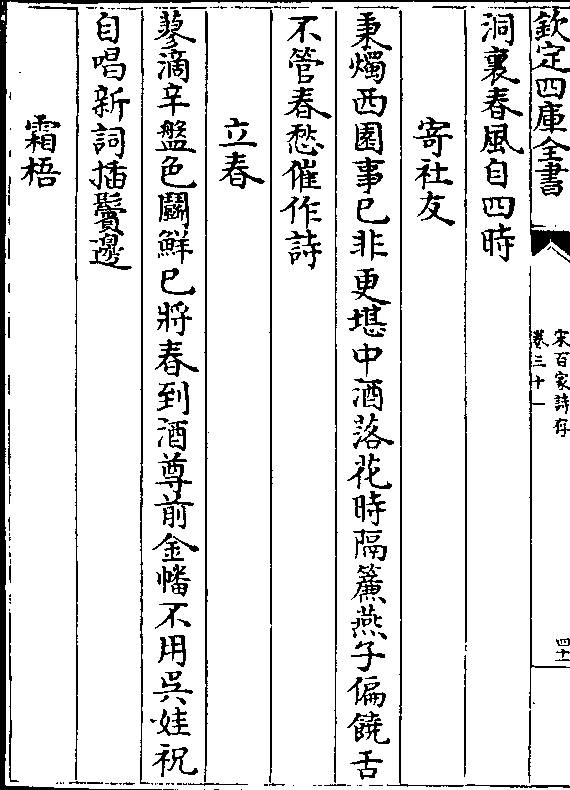 欽定四庫全書
宋百家詩存
卷三十一
四十
洞裏春風自四時
寄社友
秉燭西園事已非更堪中酒落花時隔簾燕子偏饒舌
不管春愁催作詩
立春
蓼滴辛盤色鬭鮮已將春到酒尊前金幡不用吳娃祝
自唱新詞揷鬢邊
霜梧